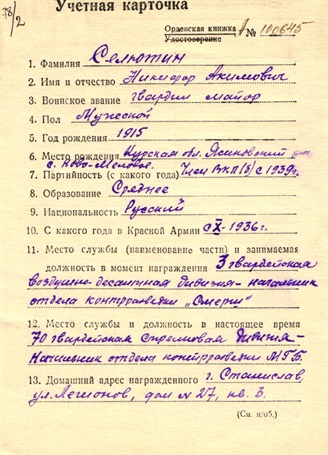 78/2
Учетная карточка
Орденская книжка
Удостоверение А № 100645
1. Фамилия Селютин
2. Имя и отчество Никифор Акимович
3. Воинское звание гвардии майор
4. Пол Мужской
5. Год рождения 1915
6. Место рождения Курская обл. Ясеновский
с. Ново-Меловое.
7. Партийность (с какого года) Член ВКП(б) с 1939г.
8. Образование Среднее
9. Национальность Русский
10. С какого года в Красной Армии с X-1936г.
11. Место службы (наименование части) и занимаемая
должность в момент награждения 3 гвардейская
воздушно-десантная дивизия-начальник
отдела контрразведки „Смерш"
12. Место службы и должность в настоящее время
70 гвардейская стрелковая дивизия-
Начальник отдела контрразведки МГБ.
13. Домашний адрес награжденного г. Станислав,
ул. Легионов, дом № 27, кв. 3.
(См. н/об.)